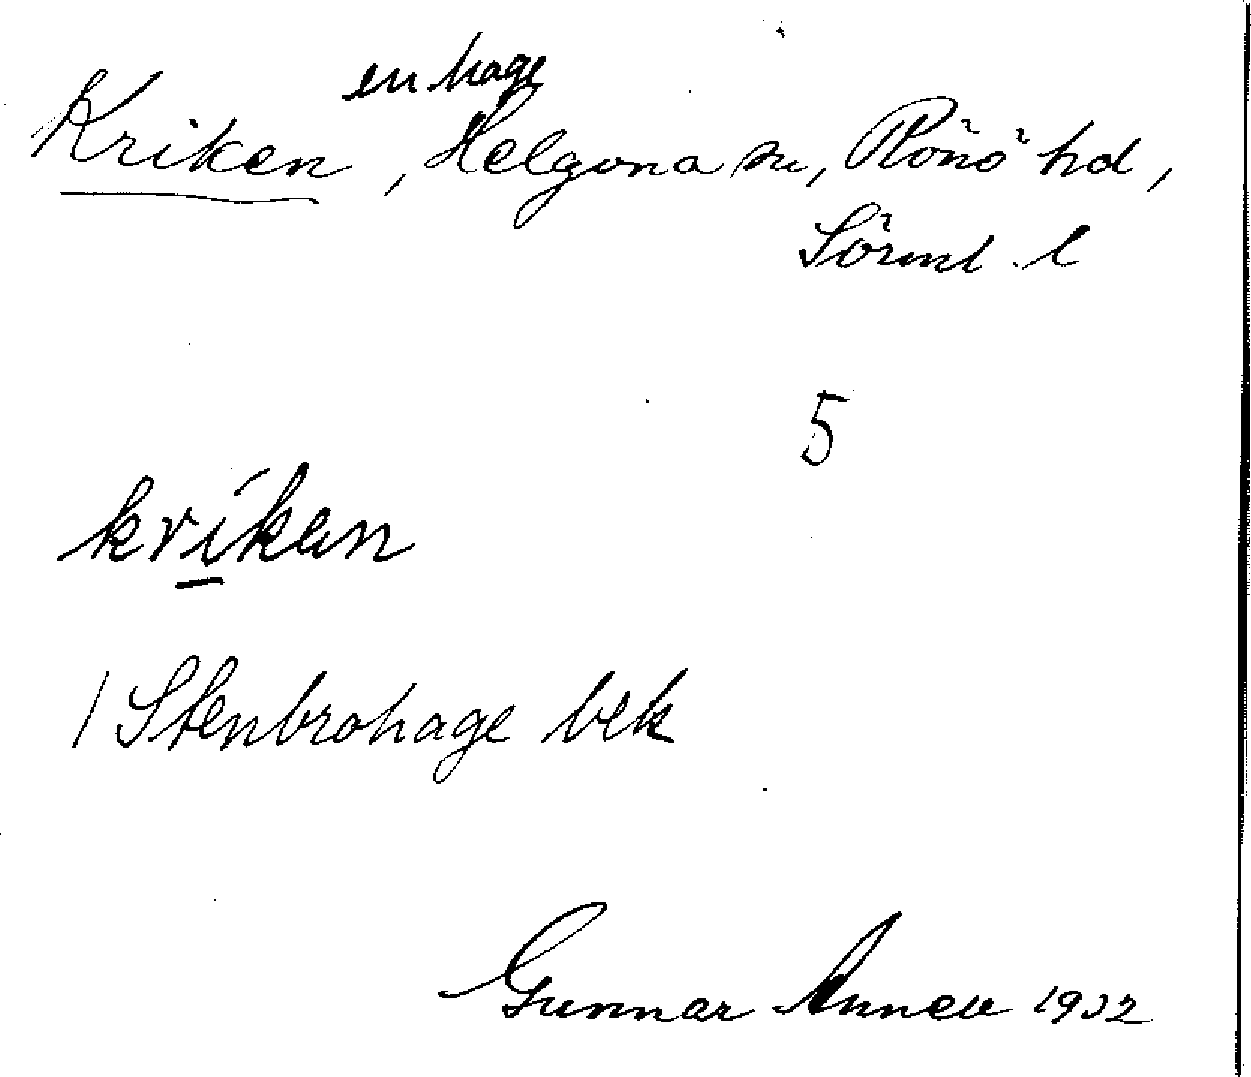 en hage
Kriken, Helgona sn, Rönö hd,
Sörml. l
5
kríkan
/ Stenbrohage bek
Gunnar Annell 1932